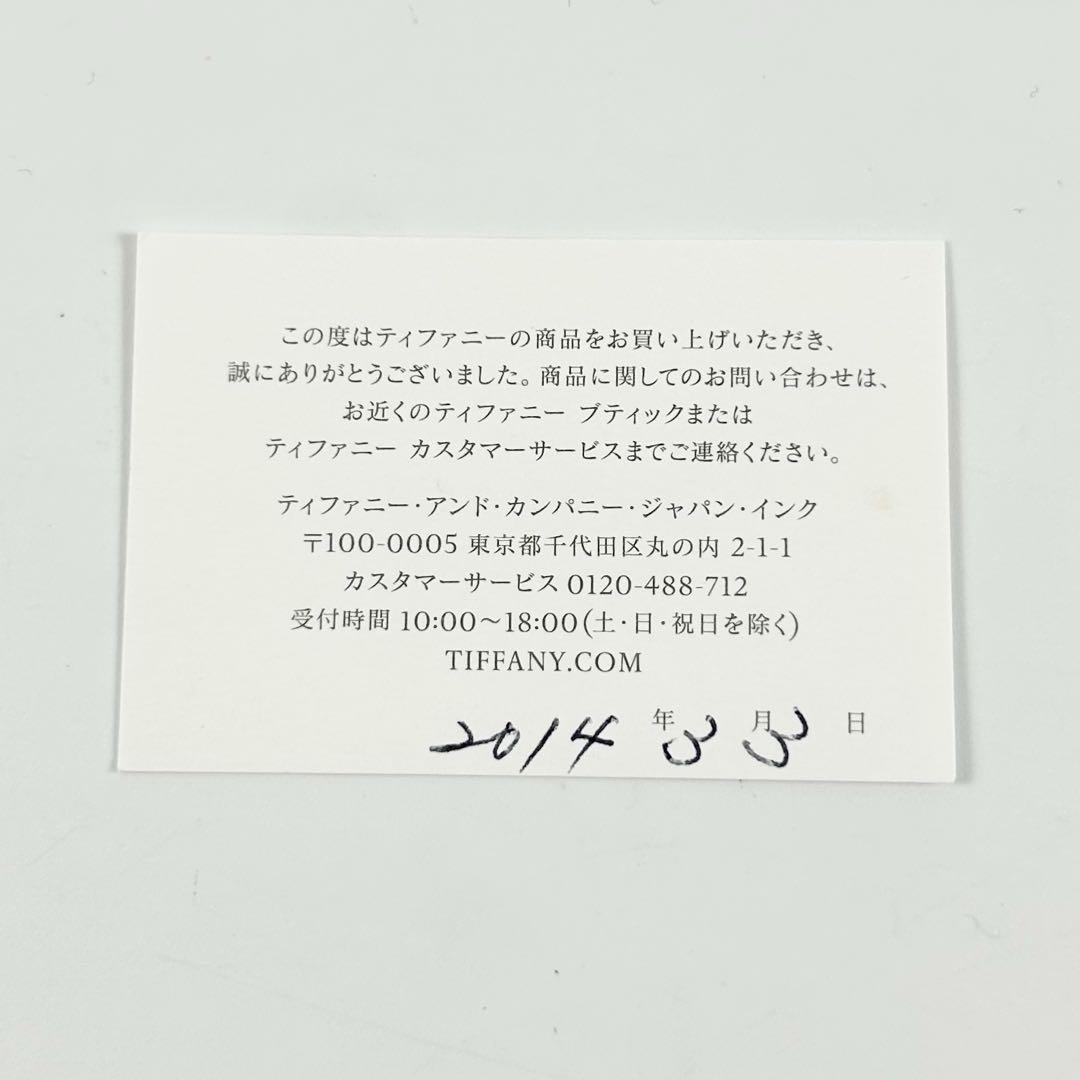 この度はティファニーの商品をお買い上げいただき、
誠にありがとうございました。商品に関してのお問い合わせは、
お近くのティファニー ブティックまたは
ティファニー カスタマーサービスまでご連絡ください。
ティファニー・アンド・カンパニー・ジャパン・インク
〒100-0005 東京都千代田区丸の内 2-1-1
カスタマーサービス 0120-488-712
受付時間 10:00〜18:00(土・日・祝日を除く)
TIFFANY.COM
2014 年 3 月 3 日